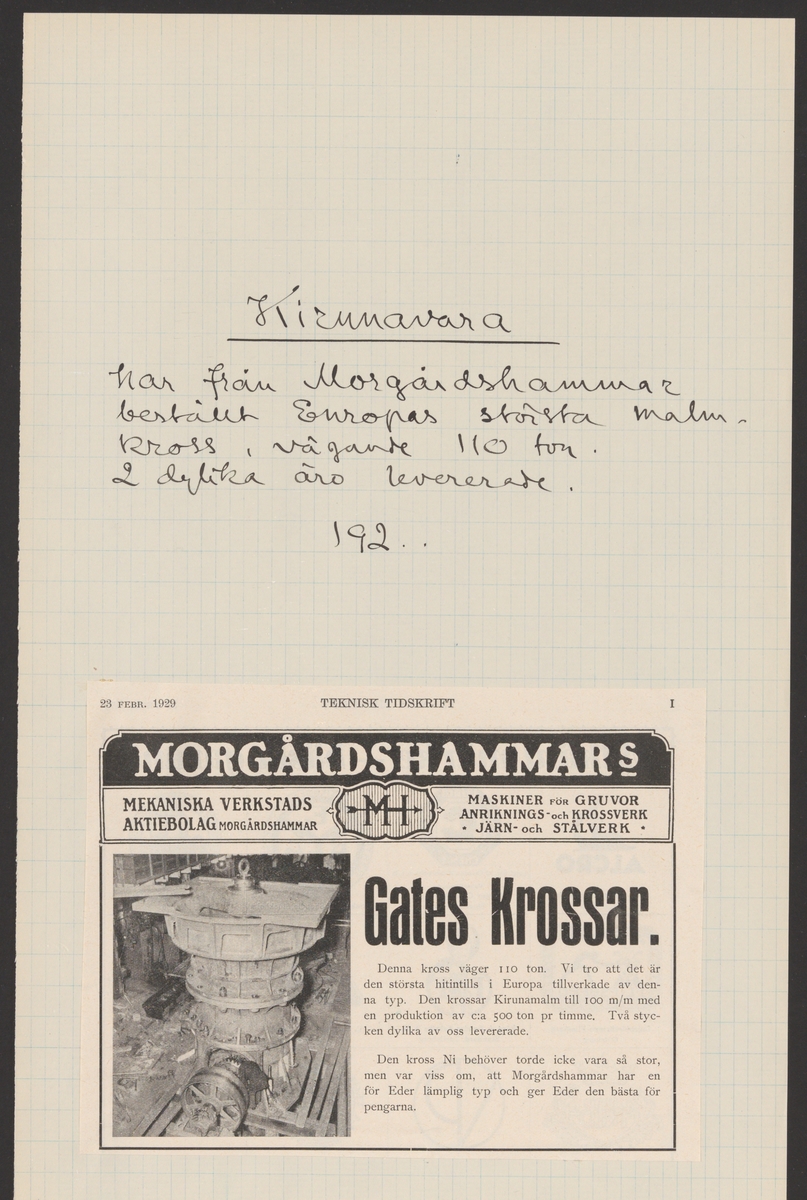 Kirunavara
har från Morgårdshammar
beställt Europas största malm-
kross, vägande 110 ton.
2 dylika äro levererade.
192..
23 FEBR. 1929 TEKNISK TIDSKRIFT I
MORGÅRDSHAMMARS
MEKANISKA VERKSTADS
AKTIEBOLAG MORGÅRDSHAMMAR
MH
MASKINER FÖR GRUVOR
ANRIKNINGS- och KROSSVERK
• JÄRN- och STÅLVERK •
Gates Krossar.
Denna kross väger 110 ton. Vi tro att det är
den största hitintills i Europa tillverkade av den-
na typ. Den krossar Kirunamalm till 100 m/m med
en produktion av c:a 500 ton pr timme. Två styc-
ken dylika av oss levererade.
Den kross Ni behöver torde icke vara så stor,
men var viss om, att Morgårdshammar har en
för Eder lämplig typ och ger Eder den bästa för
pengarna.